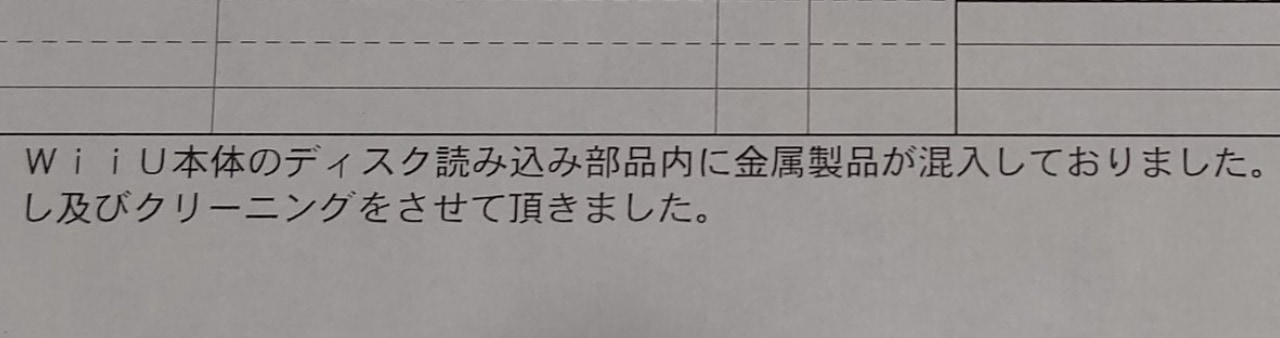 ＷｉｉＵ本体のディスク読み込み部品内に金属製品が混入しておりました。
し及びクリーニングをさせて頂きました。